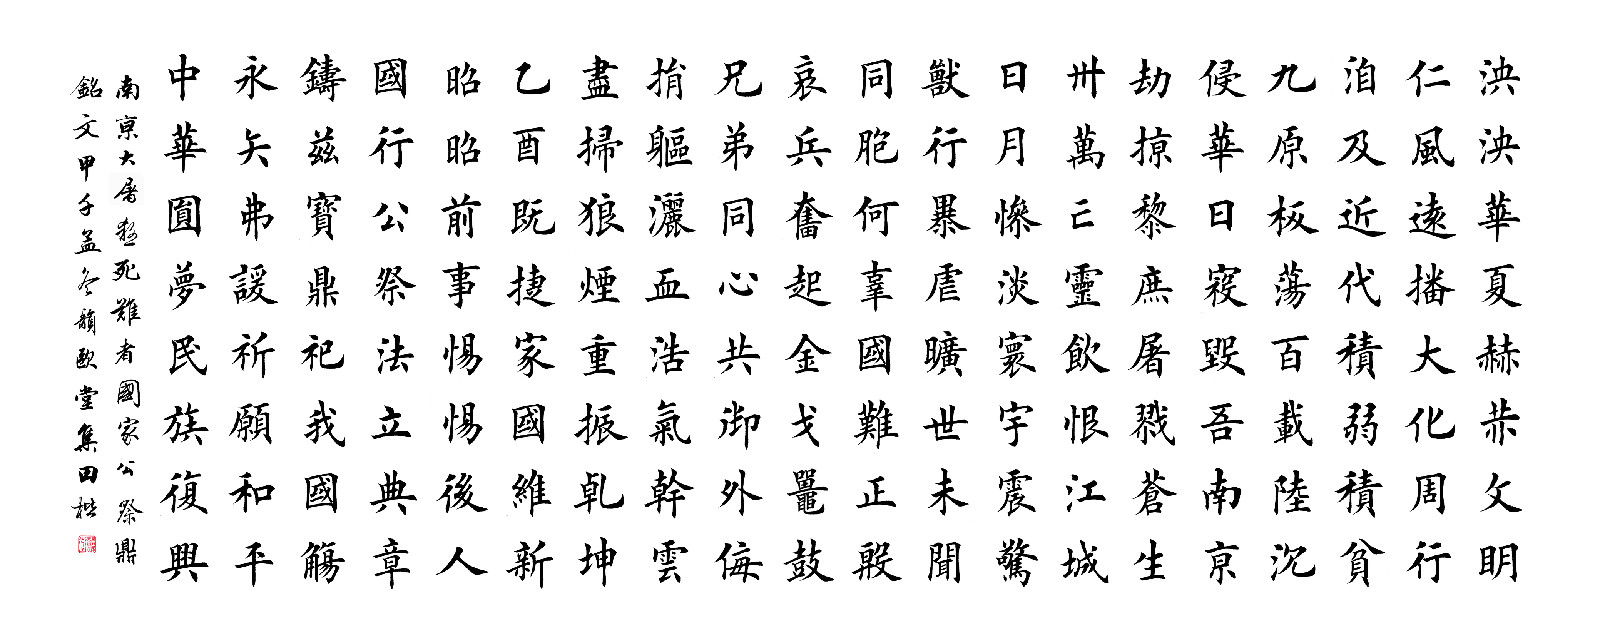 泱泱華夏赫赫文明
仁風遠播大化周行
洎及近代積弱積貧
九原板蕩百載陸沉
侵華日寇毀吾南京
劫掠黎庶屠戮蒼生
卅萬亡靈飲恨江城
日月慘淡寰宇震驚
獸行暴虐曠世未聞
同胞何辜國難正殷
哀兵奮起金戈鼉鼓
兄弟同心共御外侮
捐軀灑血浩氣幹雲
盡掃狼煙重振乾坤
乙酉既捷家國維新
昭昭前事惕惕後人
國行公祭法立典章
鑄兹寶鼎祀我國觴
永矢弗諼祈願和平
中華圓夢民族復興
南京大屠殺死難者國家公祭鼎
銘文甲午孟冬韻歐堂集田楷